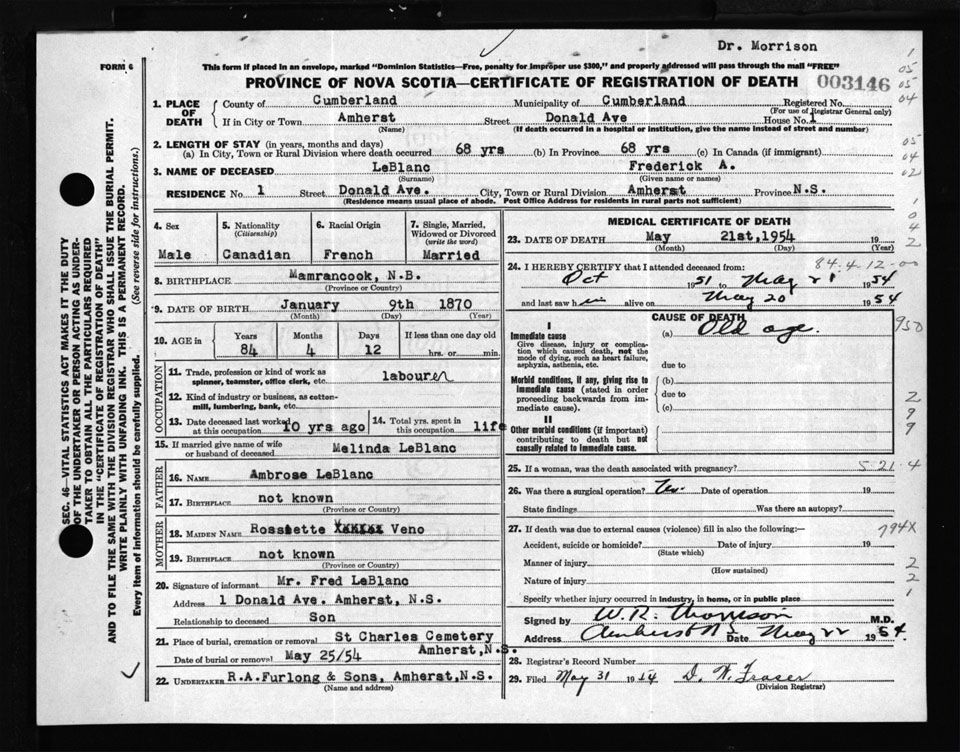 Dr. Morrison
FORM 6
This form if placed in an envelope, marked "Dominion Statistics—Free, penalty for improper use $300," and properly addressed will pass through the mail "FREE"
PROVINCE OF NOVA SCOTIA—CERTIFICATE OF REGISTRATION OF DEATH 003146
1. PLACE OF DEATH
County of Cumberland Municipality of Cumberland Registered No.
(For use of Registrar General only)
If in City or Town Amherst Street Donald Ave House No. 1
(Name) (If death occurred in a hospital or institution, give the name instead of street and number)
2. LENGTH OF STAY (in years, months and days)
(a) In City, Town or Rural Division where death occurred 68 yrs (b) In Province 68 yrs (c) In Canada (if immigrant)
3. NAME OF DECEASED LeBlanc Frederick A.
(Surname) (Given name or names)
RESIDENCE No. 1 Street Donald Ave. City, Town or Rural Division Amherst Province N.S.
(Residence means usual place of abode. Post Office Address for residents in rural parts not sufficient)
4. Sex
Male
5. Nationality
(Citizenship)
Canadian
6. Racial Origin
French
7. Single, Married, Widowed or Divorced
(write the word)
Married
8. BIRTHPLACE Mamrancook, N.B.
(Province or Country)
9. DATE OF BIRTH January 9th 1870
(Month) (Day) (Year)
10. AGE in Years Months Days If less than one day old
84 4 12 hrs. or min.
OCCUPATION
11. Trade, profession or kind of work as
spinner, teamster, office clerk, etc. labourer
12. Kind of industry or business, as cotton-
mill, lumbering, bank, etc.
13. Date deceased last worked at this occupation 10 yrs ago
14. Total yrs. spent in this occupation life
15. If married give name of wife
or husband of deceased Melinda LeBlanc
FATHER
16. NAME Ambrose LeBlanc
17. BIRTHPLACE not known
(Province or Country)
MOTHER
18. MAIDEN NAME Rossiette Veno
19. BIRTHPLACE not known
(Province or Country)
20. Signature of informant Mr. Fred LeBlanc
Address 1 Donald Ave. Amherst, N.S.
Relationship to deceased Son
21. Place of burial, cremation or removal St Charles Cemetery
Amherst, N.S.
Date of burial or removal May 25/54
22. UNDERTAKER R.A.Furlong & Sons, Amherst, N.S.
(Name and address)
MEDICAL CERTIFICATE OF DEATH
23. DATE OF DEATH May 21st, 1954 19
(Month) (Day) (Year)
84-4-12-00
24. I HEREBY CERTIFY that I attended deceased from:
Oct 1951 to May 21 1954
and last saw him alive on May 20 1954
CAUSE OF DEATH
I
Immediate cause
Give disease, injury or complica-
tion which caused death, not the
mode of dying, such as heart failure,
asphyxia, asthenia, etc.
(a) Old age.
due to
Morbid conditions, if any, giving rise to
immediate cause (stated in order
proceeding backwards from im-
mediate cause).
(b)
due to
(c)
II
Other morbid conditions (if important)
contributing to death but not
causally related to immediate cause.
25. If a woman, was the death associated with pregnancy?
5-21-4
26. Was there a surgical operation? Date of operation 19
State findings Was there an autopsy?
27. If death was due to external causes (violence) fill in also the following:—
794X
Accident, suicide or homicide? Date of injury 19
(State which)
Manner of injury
(How sustained)
Nature of injury
Specify whether injury occurred in industry, in home, or in public place
Signed by W.R. Morrison M.D.
Address Amherst NS Date May 22 1954.
28. Registrar's Record Number
29. Filed May 31 1954 D. W. Fraser
(Division Registrar)
SEC. 46—VITAL STATISTICS ACT MAKES IT THE DUTY
OF THE UNDERTAKER OR PERSON ACTING AS UNDER-
TAKER TO OBTAIN ALL THE PARTICULARS REQUIRED
IN THE "CERTIFICATE OF REGISTRATION OF DEATH"
AND TO FILE THE SAME WITH THE DIVISION REGISTRAR WHO SHALL ISSUE THE BURIAL PERMIT.
WRITE PLAINLY WITH UNFADING INK. THIS IS A PERMANENT RECORD.
Every item of information should be carefully supplied. (See reverse side for instructions.)
1
05
05
04
05
04
02
1
0
4
2
950
2
9
9
2
2
1